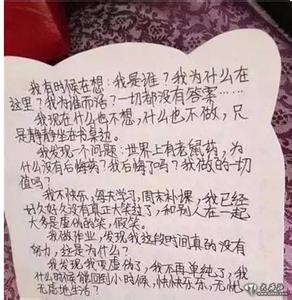 我有时候在想：我是谁？我为什么在
这里？我为谁而活？一切都没有答案……
我现在什么也不想，什么也不做，只
是静静坐在书桌边。
我发现一个问题：世界上有老鼠药，为
什么没有后悔药？我后悔了吗？我做的一切
值吗？
我不快乐，每天学习，周末补课，我已经
好久好久没有真正大笑过了，和别人在一起
大多是虚伪的笑，假笑。
我做作业，发现我这段时间真的没有
努力，这是为什么？
我发现我变虚伪了，我不再单纯了；我
什么时候能回到小时候，快快乐乐、无忧
无虑地生活？